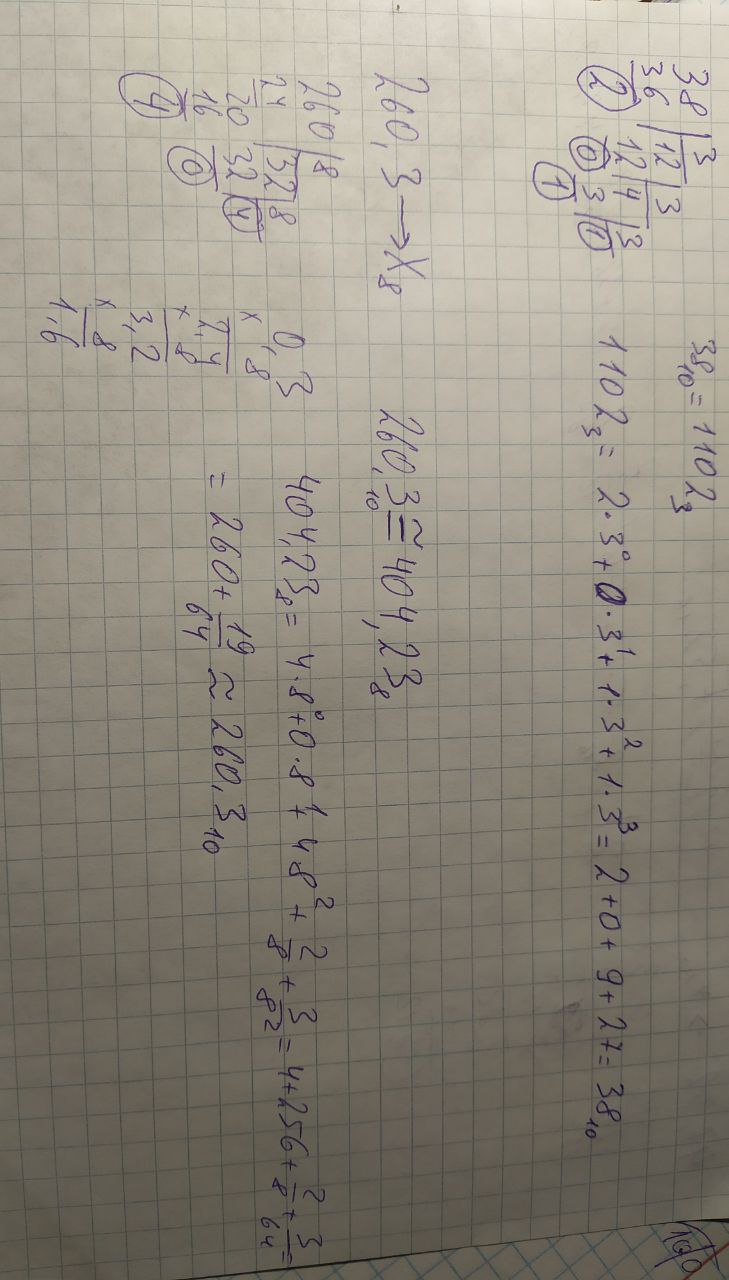 38 | 3
36 | 12 | 3
2 12 | 4 | 3
0 3 | 1
1
38₁₀ = 1102₃
1102₃ = 2·3⁰ + 0·3¹ + 1·3² + 1·3³ = 2 + 0 + 9 + 27 = 38₁₀
260,3 → X₈
260 | 8
24 | 32 | 8
20 32 | 4
16 0
4
0,3
× 8
2,4
× 8
3,2
× 8
1,6
260,3₁₀ ≃ 404,23₈
404,23₈ = 4·8⁰ + 0·8¹ + 4·8² + 2/8 + 3/8² = 4 + 256 + 2/8 + 3/64 =
= 260 + 19/64 ≈ 260,3₁₀